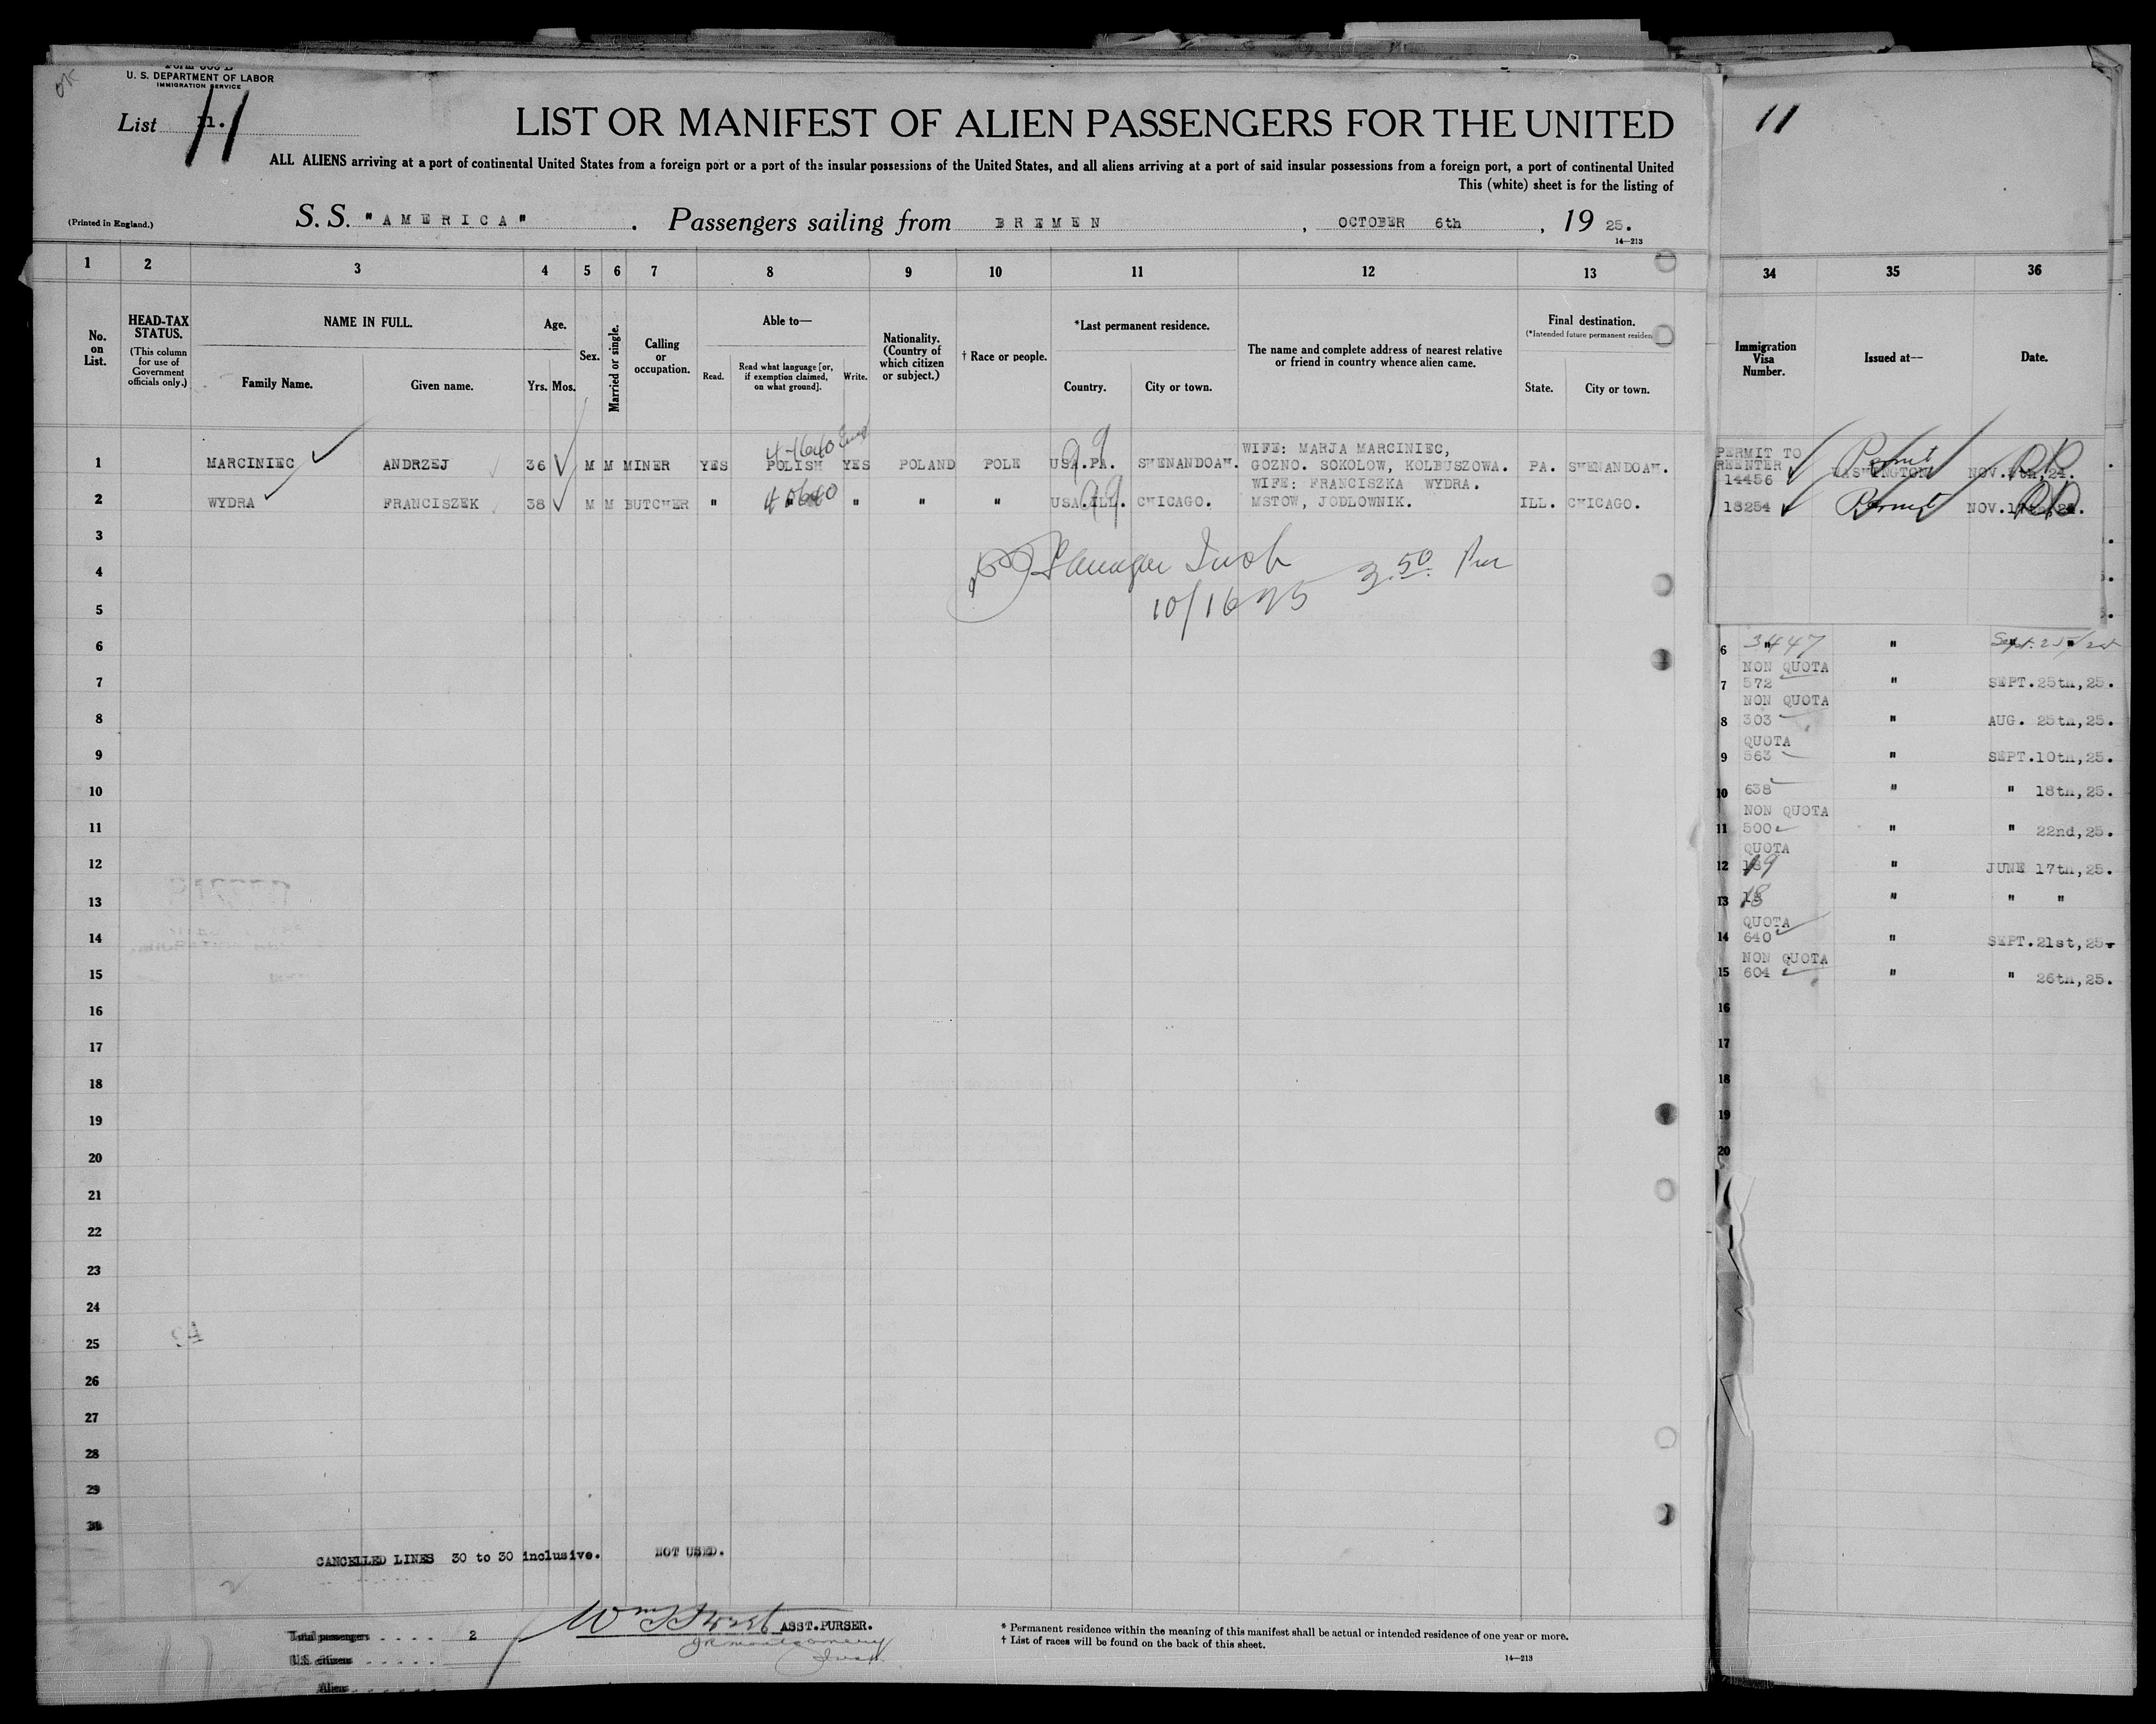 U. S. DEPARTMENT OF LABOR
IMMIGRATION SERVICE
List 11.
11
LIST OR MANIFEST OF ALIEN PASSENGERS FOR THE UNITED
11
ALL ALIENS arriving at a port of continental United States from a foreign port or a port of the insular possessions of the United States, and all aliens arriving at a port of said insular possessions from a foreign port, a port of continental United
This (white) sheet is for the listing of
(Printed in England.)
S. S. "AMERICA" . Passengers sailing from BREMEN , OCTOBER 6th , 19 25.
14—213
1 2 3 4 5 6 7 8 9 10 11 12 13 34 35 36
No. on List.
HEAD-TAX STATUS.
(This column for use of Government officials only.)
NAME IN FULL.
Family Name. Given name.
Age.
Yrs. Mos.
Sex.
Married or single.
Calling or occupation.
Able to—
Read. Read what language [or, if exemption claimed, on what ground]. Write.
Nationality. (Country of which citizen or subject.)
† Race or people.
*Last permanent residence.
Country. City or town.
The name and complete address of nearest relative or friend in country whence alien came.
Final destination.
(*Intended future permanent residen
State. City or town.
Immigration Visa Number.
Issued at—
Date.
4-1640
WIFE: MARJA MARCINIEC,
1 MARCINIEC ANDRZEJ 36 M M MINER YES POLISH YES POLAND POLE USA.PA. SHENANDOAH. GOZNO. SOKOLOW, KOLBUSZOWA. PA. SHENANDOAH.
PERMIT TO REENTER 14456 WASHINGTON Permit
WIFE: FRANCISZKA WYDRA.
2 WYDRA FRANCISZEK 38 M M BUTCHER " " " " " USA.ILL. CHICAGO. MSTOW, JODLOWNIK. ILL. CHICAGO.
18254 Permit
3
4
5
3.50
10/16 25
6
7
8
9
10
11
12
13
14
15
16
17
18
19
20
21
22
23
24
25
26
27
28
29
30
6 3447 "
NON QUOTA
7 572 " SEPT.25th,25.
NON QUOTA
8 303 " AUG. 25th,25.
QUOTA
9 563 " SEPT.10th,25.
10 638 " " 18th,25.
NON QUOTA
11 500 " " 22nd,25.
QUOTA
12 19 " JUNE 17th,25.
13 18 " " "
QUOTA
14 640 " SEPT.21st,25.
NON QUOTA
15 604 " " 26th,25.
16
17
18
19
20
CANCELLED LINES 30 to 30 inclusive. NOT USED.
Total passengers . . . . 2
U.S. citizens . . . . .
Aliens
ASST.PURSER.
* Permanent residence within the meaning of this manifest shall be actual or intended residence of one year or more.
† List of races will be found on the back of this sheet.
14—213